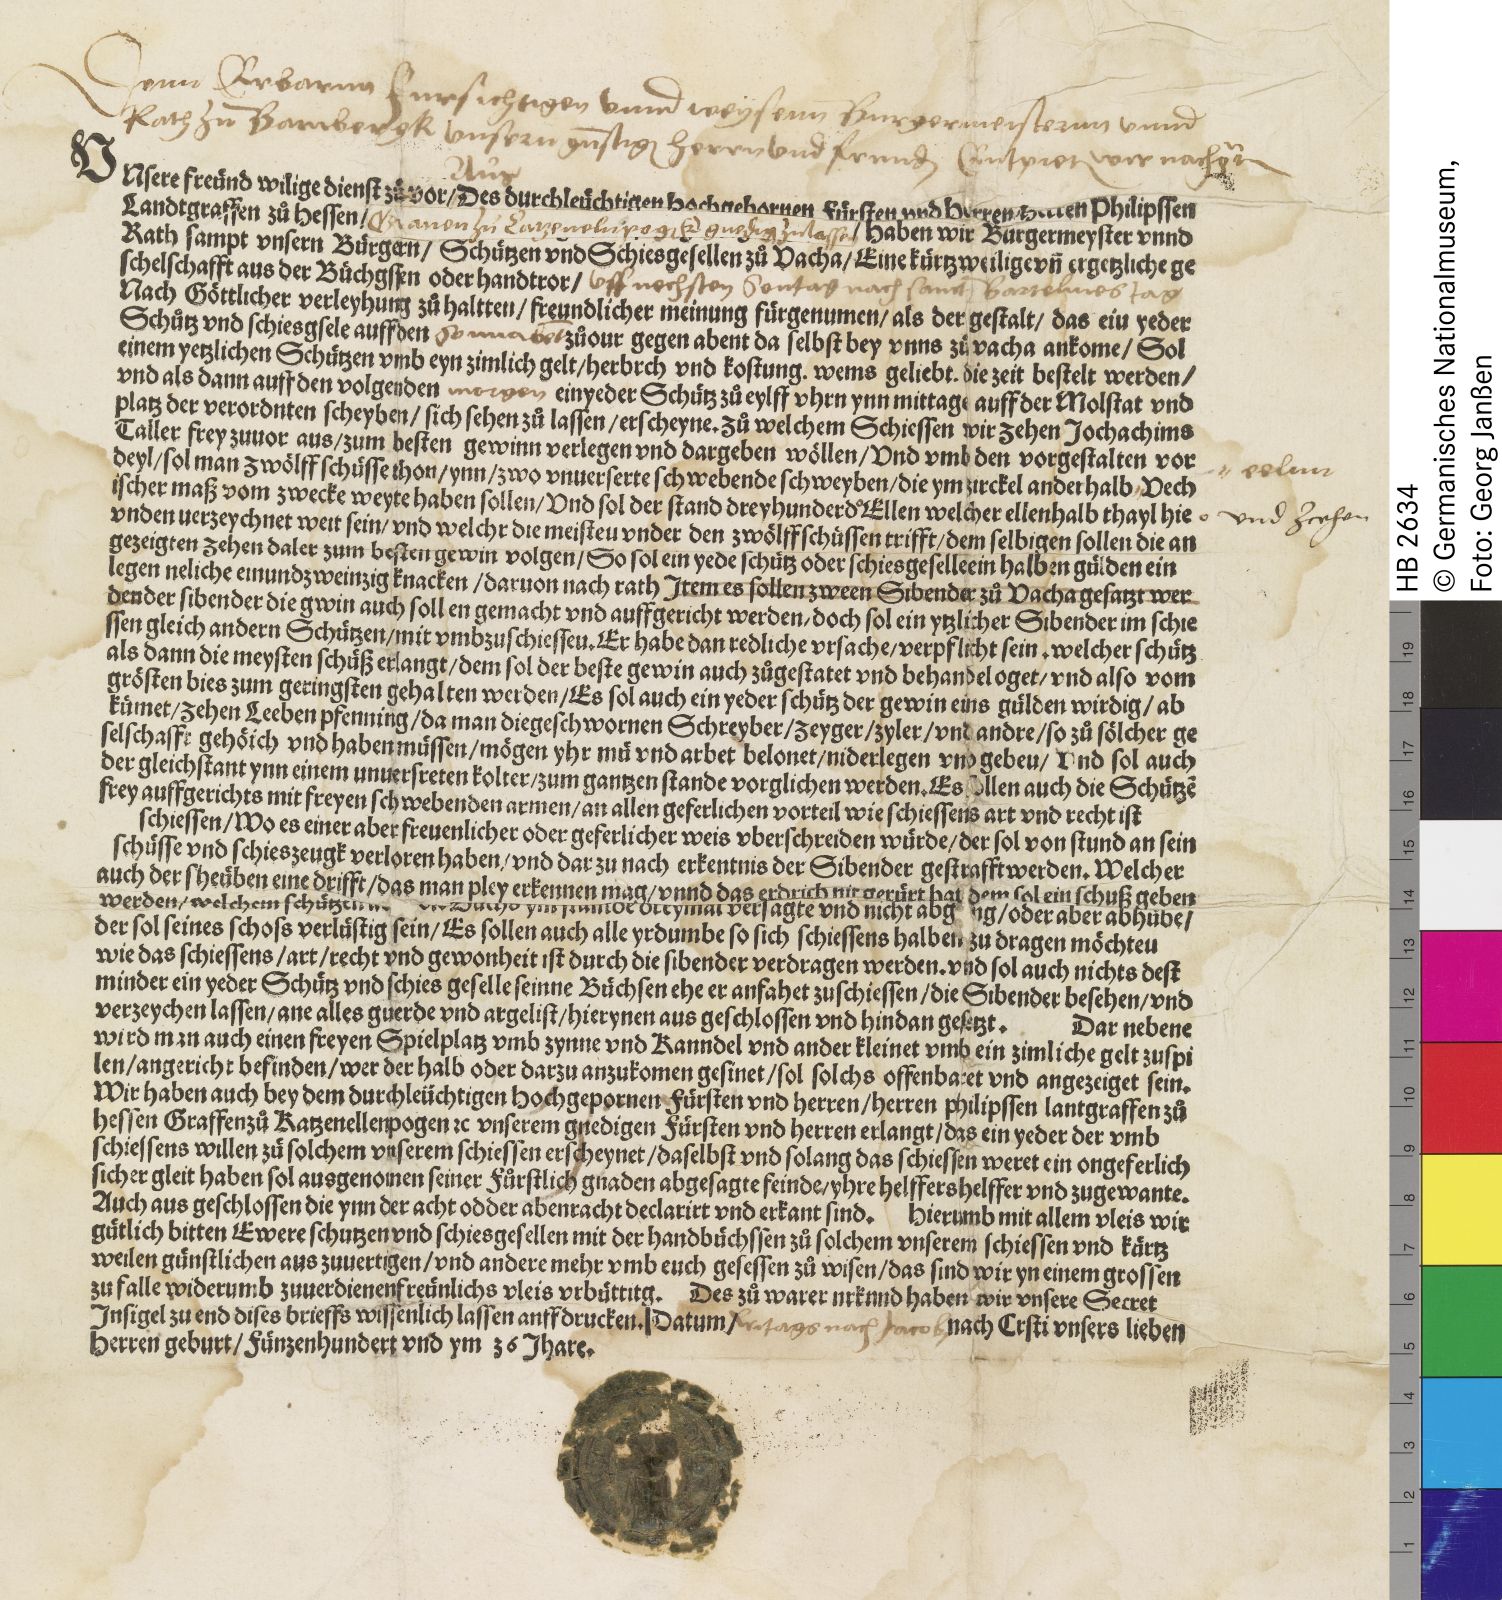 Denn Erbarnn Fursichtigen vnnd weysenn Burgermeisternn vnnd
Rath zu Bambergk vnsern gunstigen herrn vnd freund Entpieten wir nach
Aus
VNsere freünd wilige dienst zů vor/ Des durchleüchtigen Hochgebornen Fürsten vnd Herren/ Herren Philipssen
Landtgraffen zů Hessen/ Grauen zu Catzenelnpogen gnedig zulassen/ Haben wir Burgermeyster vnnd
Rath sampt vnsern Bürgern/ Schützen vnd Schiesgesellen zů Vacha/ Eine kürtzweilige vn̄ ergetzliche ge
schelschafft aus der Büchgssen oder handtror/ vff nechsten Sontag nach sanct Bartelmes tag
Nach Göttlicher verleyhung zů haltten/ freundlicher meinung fürgenumen/ als der gestalt/ das eiu yeder
Schůtz vnd schiesgsele auff den Sonnabet zůour gegen abent da selbst bey vnns zů vacha ankome/ Sol
einem yetzlichen Schützen vmb eyn zimlich gelt/ herbrch vnd kostung. wems geliebt. die zeit bestelt werden/
vnd als dann auff den volgenden morgen einyeder Schütz zů eylff vhrn ynn mittage auff der Molstat vnd
platz der verordnten scheyben/ sich sehen zů lassen/ erscheyne. Zů welchem Schiessen wir zehen Jochachims
Taller frey zuuor aus/ zum besten gewinn verlegen vnd dargeben wöllen/ Vnd vmb den vorgestalten vor
deyl/ sol man zwölff schüsse thon/ ynn/ zwo vnuerserte schwebende schweyben/ die ym zirckel anderhalb Vech
" eelnn
ischer maß vom zwecke weyte haben sollen/ Vnd sol der stand dreyhunderd Ellen welcher ellenhalb thayl hie
o vnd zcehen
vnden uerzeychnet weit sein/ vnd welchr die meisteu vnder den zwölff schüssen trifft/ dem selbigen sollen die an
gezeigten zehen daler zum besten gewin volgen/ So sol ein yede schütz oder schiesgeselle ein halben gülden ein
legen neliche einundzweinzig knacken/ daruon nach rath Item es sollen zween Sibender zů Vacha gesatzt wer
den der sibender die gwin auch soll en gemacht vnd auffgericht werden/ doch sol ein ytzlicher Sibender im schie
ssen gleich andern Schützen/ mit vmbzuschiesseu. Er habe dan redliche vrsache/ verpflicht sein. welcher schütz
als dann die meysten schüß erlangt/ dem sol der beste gewin auch zůgestatet vnd behandel oget/ vnd also vom
grösten bies zum geringsten gehalten werden/ Es sol auch ein yeder schütz der gewin eins gülden wirdig/ ab
kümet/ zehen Leeben pfenning/ da man die geschwornen Schreyber/ zeyger/ zyler/ vnd andre/ so zů sölcher ge
selschafft gehöich vnd haben müssen/ mögen yhr mü vnd arbet belonet/ niderlegen vnd gebeu/ Vnd sol auch
der gleichstant ynn einem unuersreten kolter/ zum gantzen stande vorglichen werden. Es sollen auch die Schützē
frey auffgerichts mit freyen schwebenden armen/ an allen geferlichen vorteil wie schiessens art vnd recht ist
schiessen/ Wo es einer aber freuenlicher oder geferlicher weis vberschreiden würde/ der sol von stund an sein
schüsse vnd schieszeugk verloren haben/ vnd dar zu nach erkentnis der Sibender gestrafft werden. Welcher
auch der sheüben eine drifft/ das man pley erkennen mag/ vnnd das erdrich nit gerürt hat dem sol ein schuß geben
werden/ welchem schützen versagte vnd nicht abging/ oder aber abhübe/
der sol seines schoss verlüstig sein/ Es sollen auch alle yrdumbe so sich schiessens halben zu dragen möchteu
wie das schiessens/ art/ recht vnd gewonheit ist durch die sibender verdragen werden. vnd sol auch nichts dest
minder ein yeder Schütz vnd schies geselle seinne Büchsen ehe er anfahet zuschiessen/ die Sibender besehen/ vnd
verzeychen lassen/ ane alles guerde vnd argelist/ hierynen aus geschlossen vnd hindan gesetzt. Dar nebene
wird man auch einen freyen Spielplatz vmb zynne vnd Kanndel vnd ander kleinet vmb ein zimliche gelt zuspi
len/ angericht befinden/ wer der halb oder darzu anzukomen gesinet/ sol solchs offenbaret vnd angezeiget sein.
Wir haben auch bey dem durchleüchtigen Hochgepornen Fürsten vnd herren/ herren philipssen lantgraffen zů
hessen Graffenzů Katzenellenpogen ꝛc vnserem gnedigen Fürsten vnd herren erlangt/ das ein yeder der vmb
schiessens willen zů solchem vnserem schiessen erscheynet/ daselbst vnd solang das schiessen weret ein ongeferlich
sicher gleit haben sol ausgenomen seiner Fůrstlich gnaden abgesagte feinde/ yhre helffershelffer vnd zugewante.
Auch aus geschlossen die ynn der acht odder abenracht declarirt vnd erkant sind. Hierumb mit allem vleis wir
gütlich bitten Ewere schutzen vnd schiesgesellen mit der handbüchssen zů solchem vnserem schiessen vnd kürtz
weilen günstlichen aus zuuertigen/ vnd andere mehr vmb euch gesessen zů wisen/ das sind wir yn einem grossen
zu falle widerumb zuuerdienen freünlichs vleis vrbüttitg. Des zů warer urknnd haben wir vnsere Secret
Insigel zu end dises brieffs wissenlich lassen anffdrucken. Datum/ freitags nach Jacobi nach Crsti vnsers lieben
Herren geburt/ Fünzenhundert vnd ym 36 Jhare.
HB 2634
© Germanisches Nationalmuseum,
Foto: Georg Janßen
19
18
17
16
15
14
13
12
11
10
9
8
7
6
5
4
3
2
1